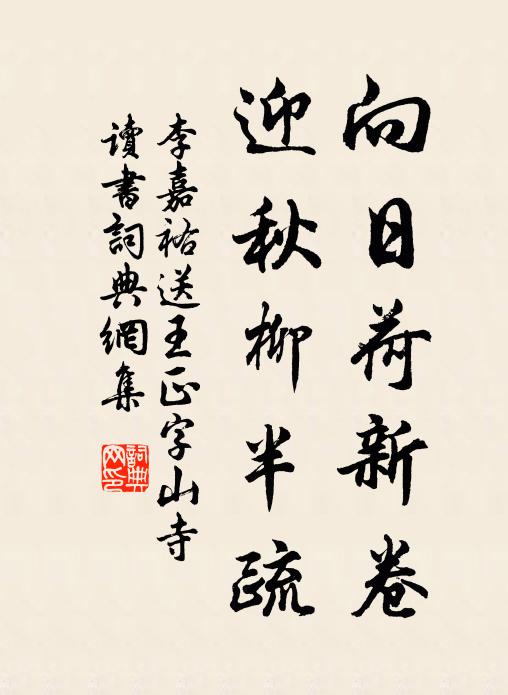 向日荷新卷
迎秋柳半疏
李嘉祐送王正字山寺
讀書詞典網集
詞典网印